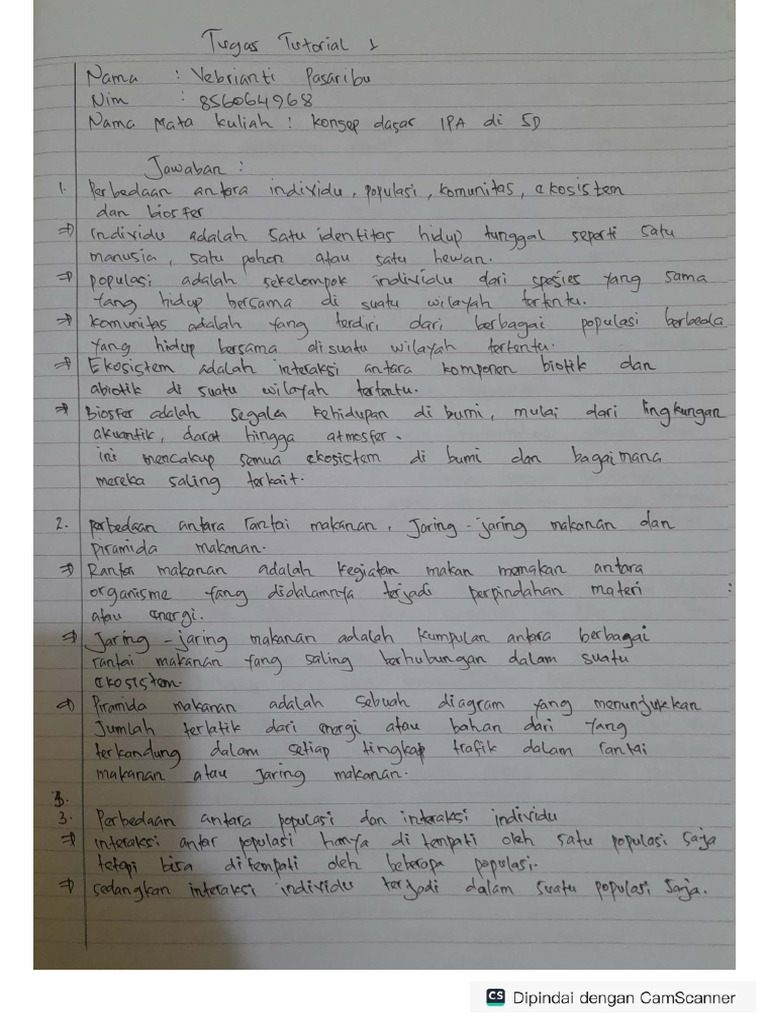 Tugas Tutorial 1
Nama : Vebrianti Pasaribu
Nim : 856064968
Nama Mata kuliah : Konsep dasar IPA di SD
Jawaban :
1. Perbedaan antara individu, populasi, komunitas, ekosistem
dan biosfer
⇒ Individu adalah satu identitas hidup tunggal seperti satu
manusia, satu pohon atau satu hewan.
⇒ populasi adalah sekelompok individu dari spesies yang sama
yang hidup bersama di suatu wilayah tertentu.
⇒ komunitas adalah yang terdiri dari berbagai populasi berbeda
yang hidup bersama disuatu wilayah tertentu.
⇒ Ekosistem adalah interaksi antara komponen biotik dan
abiotik di suatu wilayah tertentu.
⇒ Biosfer adalah segala kehidupan di bumi, mulai dari lingkungan
akuantik, darat hingga atmosfer.
ini mencakup semua ekosistem di bumi dan bagaimana
mereka saling terkait.
2. perbedaan antara rantai makanan, Jaring-jaring makanan dan
piramida makanan.
⇒ Rantai makanan adalah kegiatan makan memakan antara
organisme yang didalamnya terjadi perpindahan materi
atau energi.
⇒ Jaring-jaring makanan adalah kumpulan antara berbagai
rantai makanan yang saling berhubungan dalam suatu
ekosistem.
⇒ Piramida makanan adalah sebuah diagram yang menunjukkan
Jumlah terlatik dari energi atau bahan dari yang
terkandung dalam setiap tingkap trafik dalam rantai
makanan atau Jaring makanan.
3. Perbedaan antara populasi dan interaksi individu
⇒ interaksi antar populasi hanya di tempati oleh satu populasi saja
tetapi bisa di tempati oleh beberapa populasi.
⇒ sedangkan interaksi individu terjadi dalam suatu populasi saja.
CS Dipindai dengan CamScanner